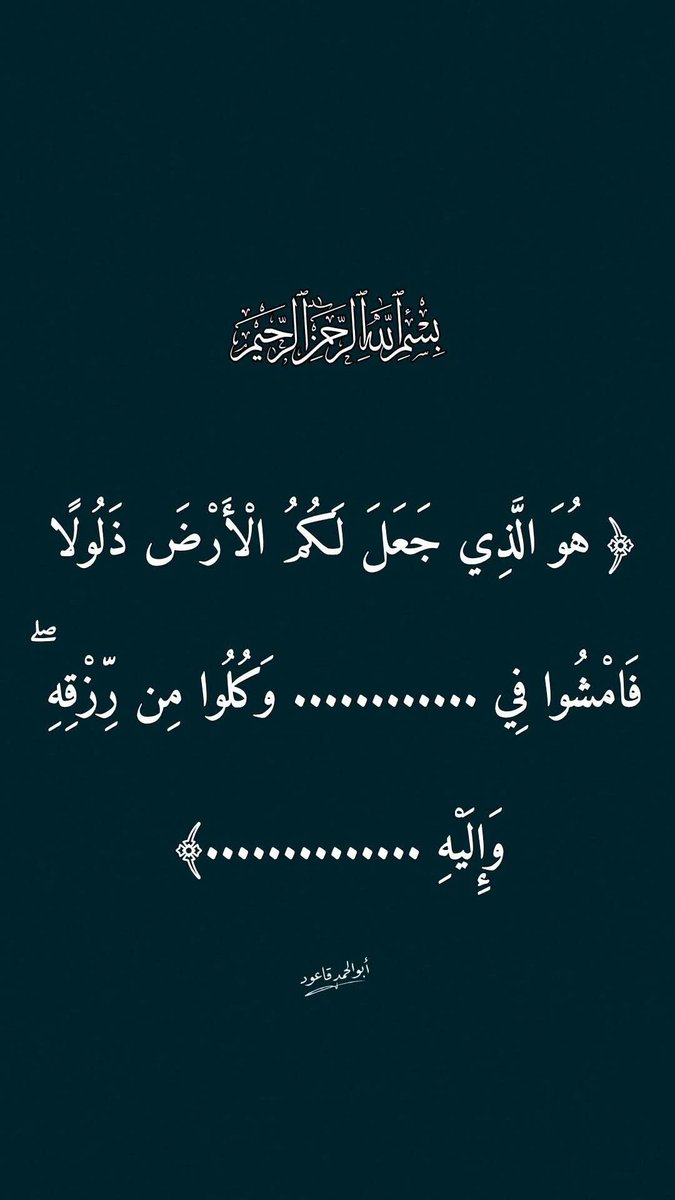 بِسْمِ ٱللَّهِ ٱلرَّحْمَٰنِ ٱلرَّحِيمِ
﴿ هُوَ الَّذِي جَعَلَ لَكُمُ الْأَرْضَ ذَلُولًا
فَامْشُوا فِي ............ وَكُلُوا مِن رِّزْقِهِ ۖ
وَإِلَيْهِ ..............﴾
أبوالحمد قاعود